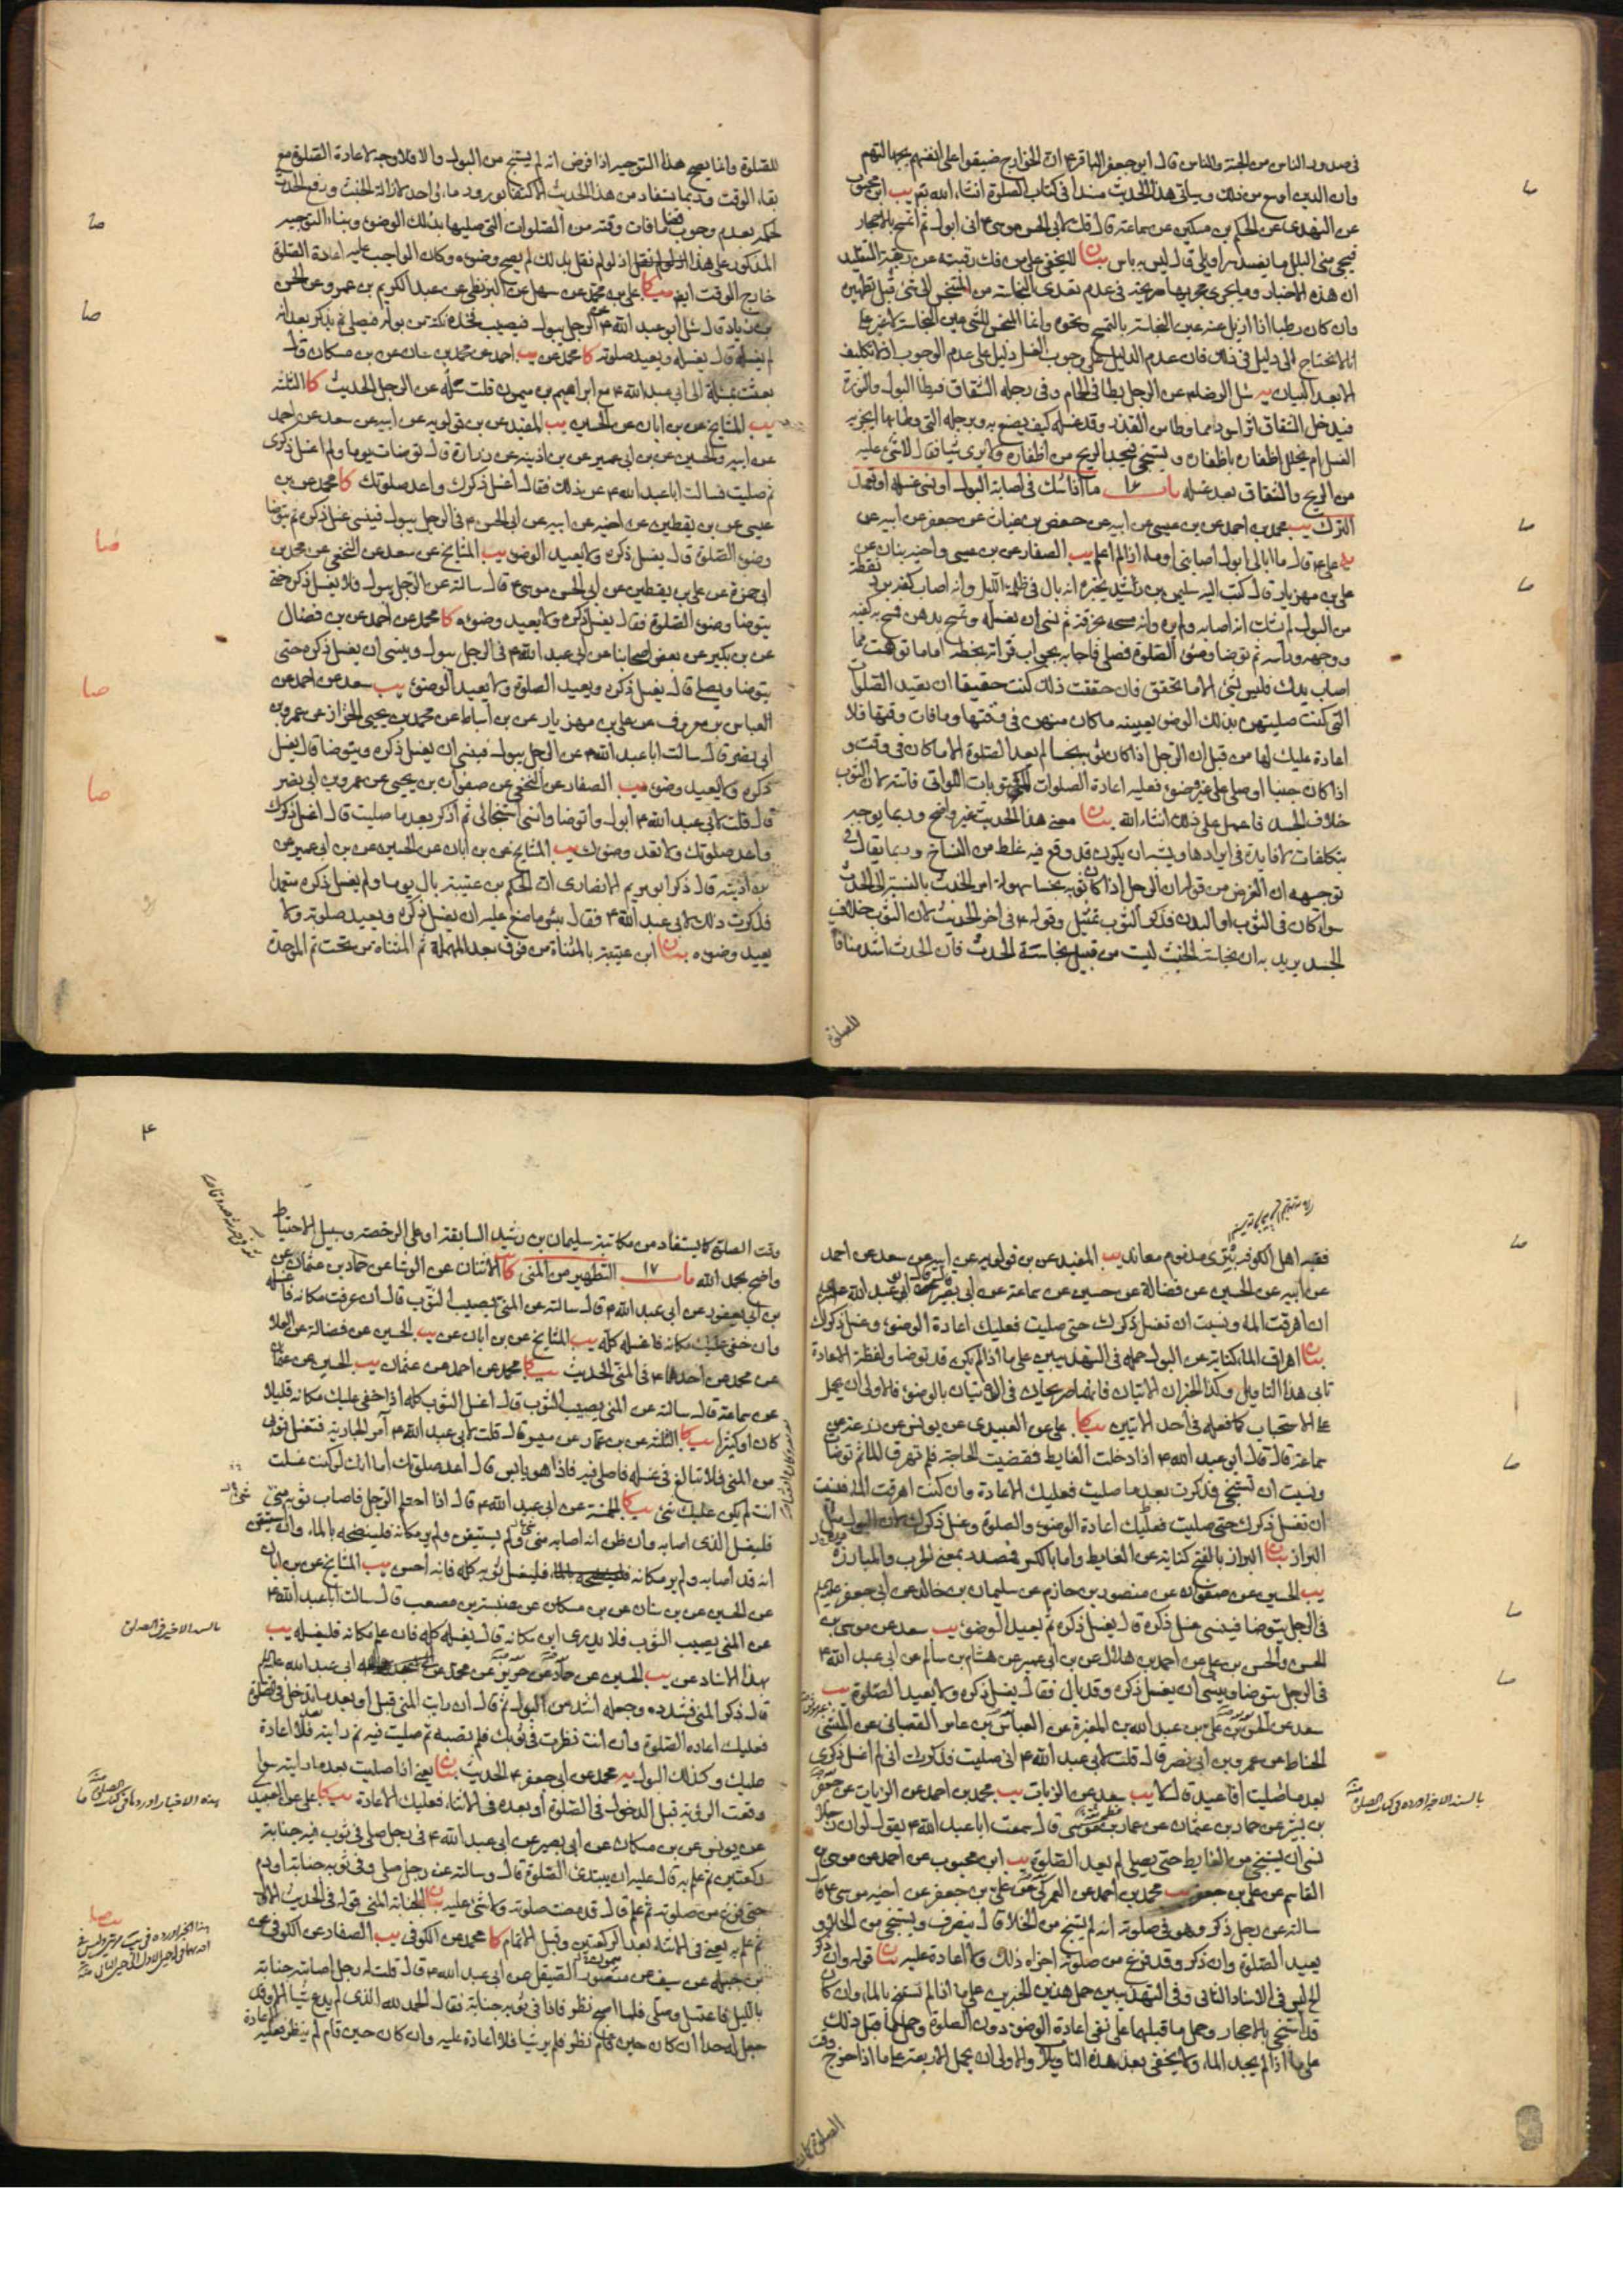 فى صدور الناس من الجنة والناس قال ابى جعفر الباقر ٤ ان الخوارج ضيقوا على انفسهم بجهالتهم
وان الدين اوسع من ذلك وسياتى هذا الحديث مسندا فى كتاب الصلوة انشاء الله تعم يب ابن محبوب
عن النهدى عن الحكم بن مسكين عن سماعة قال قلت لابى الحسن موسى ٤ انى ابول ثم اتمسح بالاحجار
فيجئ منى البلل ما يفسد سراويلى قال ليس به باس بيان لا يخفى على من فك رقبته عن ربقة التقليد
ان هذه الاخبار وما يجرى مجراها صريحة فى عدم تعدى النجاسة من المتنجس الى شئ قبل تطهيره
وان كان رطبا اذا ازيل عنه عين النجاسة بالتمسح ونحوه وانما المنجس للشئ عين النجاسة لا غير على
انا لا نحتاج الى دليل فى ذلك فان عدم الدليل على وجوب الغسل دليل على عدم الوجوب اذ لا تكليف
الا بعد البيان يه سئل الرضا ٤ عن الرجل يطأ فى الحمام وفى رجله الشقاق فيطأ البول والنورة
فيدخل الشقاق اثر اسود مما وطا من القذر وقد غسله كيف يصنع به وبرجله التى وطا بها ايجزيه
الغسل ام يخلل اظفاره باظفاره ويستنجى فيجد الريح من اظفاره ولا يرى شيئا فقال لا شئ عليه
من الريح والشقاق بعد غسله باب ١٦ ما اذا شك فى اصابة البول او نسى غسله او تعمد
الترك يب محمد بن احمد عن بن عيسى عن ابيه عن حفص بن غياث عن جعفر عن ابيه عن
على ٤ قال ما ابالى ابول اصابنى او ماء اذا لم اعلم يب الصفار عن بن عيسى واخيه بنان عن
على بن مهزيار قال كتب اليه سليمن بن رشيد يخبره انه بال فى ظلمة الليل وانه اصاب كفه برد نقطة
من البول لم يشك انه اصابه ولم يره وانه مسحه بخرقة ثم نسى ان يغسله وتمسح بدهن فمسح به كفيه
ووجهه وراسه ثم توضا وضوء الصلوة فصلى فاجابه بجواب قراته بخطه اما ما توهمت مما
اصاب يدك فليس بشئ الا ما تحقق فان حققت ذلك كنت حقيقا ان تعيد الصلوات
التى كنت صليتهن بذلك الوضوء بعينه ما كان منهن فى وقتها وما فات وقتها فلا
اعادة عليك لها من قبل ان الرجل اذا كان ثوبه نجسا لم يعد الصلوة الا ما كان فى وقت و
اذا كان جنبا او صلى على غير وضوء فعليه اعادة الصلوات المكتوبات اللواتى فاتته لان الثوب
خلاف الجسد فاعمل على ذلك انشاء الله بيان معنى هذا الحديث غير واضح وربما يوجه
بتكلفات لا فايدة فى ايرادها ويشبه ان يكون قد وقع فيه غلط من النساخ وربما يقال فى
توجيهه ان الغرض من قوله ان الرجل اذا كان ثوبه نجسا سهولة امر الخبث بالنسبة الى الحدث
سواء كان فى الثوب او البدن فذكر الثوب تمثيل وقوله ٤ فى اخر الحديث لان الثوب خلاف
الجسد يريد به ان نجاسة الخبث ليست من قبيل نجاسة الحدث فان الحدث اشد منافاة
للصلوة
للصلوة وانما يصح هذا التوجيه اذا فرض انه لم يستنج من البول والا فلا وجه لاعادة الصلوة مع
بقاء الوقت وربما يستفاد من هذا الحديث الاكتفاء بورود ماء واحد لازالة الخبث ورفع الحدث
لحكمه بعدم وجوب قضاء ما فات وقته من الصلوات التى صليها بذلك الوضوء وبناء التوجيه
المذكور على هذا اذ لو لم نقل بذلك لم يصح وضوءه وكان الواجب عليه اعادة الصلوة
خارج الوقت ايضا يب كا على بن محمد عن سهل عن البزنطى عن عبد الكريم بن عمرو عن الحسن
بن زياد قال سئل ابو عبد الله ٤ عن الرجل يبول فيصيب فخذه نكتة من بوله فيصلى ثم يذكر بعد انه
لم يغسله قال يغسله ويعيد صلوته كا محمد عن يب احمد عن محمد بن سنان عن بن مسكان قال
بعثت بمسئلة الى ابى عبد الله ٤ مع ابراهيم بن ميمون قلت سله عن الرجل الحديث كا الثلثة
يب المشايخ عن بن ابان عن الحسين يب المفيد عن بن قولويه عن ابيه عن سعد عن احمد
عن ابيه والحسين عن بن ابى عمير عن بن اذينة عن زرارة قال توضات يوما ولم اغسل ذكرى
ثم صليت فسالت ابا عبد الله ٤ عن ذلك فقال اغسل ذكرك واعد صلوتك كا محمد عن بن
عيسى عن بن يقطين عن اخيه عن ابيه عن ابى الحسن ٤ فى الرجل يبول فينسى غسل ذكره ثم يتوضا
وضوء الصلوة قال يغسل ذكره ولا يعيد الوضوء يب المشايخ عن سعد عن النخعى عن محمد بن
ابى حمزة عن على بن يقطين عن ابى الحسن موسى ٤ قال سالته عن الرجل يبول فلا يغسل ذكره حتى
يتوضا وضوء الصلوة فقال يغسل ذكره ولا يعيد وضوءه كا محمد عن احمد عن بن فضال
عن بن بكير عن بعض اصحابنا عن ابى عبد الله ٤ فى الرجل يبول وينسى ان يغسل ذكره حتى
يتوضا ويصلى قال يغسل ذكره ويعيد الصلوة ولا يعيد الوضوء يب سعد عن احمد عن
العباس بن معروف عن على بن مهزيار عن بن اسباط عن محمد بن يحيى الخزاز عن عمرو بن
ابى نصر قال سالت ابا عبد الله ٤ عن الرجل يبول فينسى ان يغسل ذكره ويتوضا قال يغسل
ذكره ولا يعيد وضوءه يب الصفار عن النخعى عن صفوان بن يحيى عن عمرو بن ابى نصر
قال قلت لابى عبد الله ٤ ابول واتوضا وانسى استنجائى ثم اذكر بعد ما صليت قال اغسل ذكرك
واعد صلوتك ولا تعد وضوءك يب المشايخ عن بن ابان عن الحسين عن بن ابى عمير عن
بن اذينة قال ذكر ابو مريم الانصارى ان الحكم بن عتيبة بال يوما ولم يغسل ذكره متعمدا
فذكرت ذلك لابى عبد الله ٤ فقال بئس ما صنع عليه ان يغسل ذكره ويعيد صلوته ولا
يعيد وضوءه بيان ابن عتيبة بالمثناة من فوق بعد المهملة ثم المثناة من تحت ثم الموحدة
فقيه اهل الكوفة بترى مذموم معاند يب المفيد عن بن قولويه عن ابيه عن سعد عن احمد
عن ابيه عن الحسين عن فضالة عن حسين عن سماعة عن ابى بصير قال قال ابو عبد الله
ان اهرقت الماء ونسيت ان تغسل ذكرك حتى صليت فعليك اعادة الوضوء وغسل ذكرك
بيان اهراق الماء كناية عن البول حمله فى التهذيبين على ما اذا لم يكن قد توضا ولفظة الاعادة
تابى هذا التاويل وكذا الخبران الاتيان فانهما صريحان فى الاتيان بالوضوء فالاولى ان يحمل
على الاستحباب كما فعله فى احد الاتيين يب كا على عن العبيدى عن يونس عن زرعة عن
سماعة قال قال ابى عبد الله ٤ اذا دخلت الغايط فقضيت الحاجة فلم تهرق الماء ثم توضات
ونسيت ان تستنجى فذكرت بعد ما صليت فعليك الاعادة وان كنت اهرقت الماء فنسيت
ان تغسل ذكرك حتى صليت فعليك اعادة الوضوء والصلوة وغسل ذكرك لان البول مثل
البراز بيان البراز بالفتح كناية عن الغايط واما بالكسر فمصدر بمعنى الحرب والمبارزة
يب الحسين عن صفوان عن منصور بن حازم عن سليمان بن خالد عن ابى جعفر عليه
فى الرجل يتوضا فينسى غسل ذكره قال يغسل ذكره ثم يعيد الوضوء يب سعد عن موسى بن
الحسن والحسن بن على عن احمد بن هلال عن بن ابى عمير عن هشام بن سالم عن ابى عبد الله ٤
فى الرجل يتوضا وينسى ان يغسل ذكره وقد بال فقال يغسل ذكره ولا يعيد الصلوة يب
سعد عن الحسن بن على بن عبد الله بن المغيرة عن العباس بن عامر القصبانى عن المثنى
الحناط عن عمرو بن ابى نصر قال قلت لابى عبد الله ٤ انى صليت فذكرت انى لم اغسل ذكرى
بعد ما صليت افاعيد قال لا يب سعد عن الزيات يب محمد بن احمد عن الزيات عن جعفر
بن بشير عن حماد بن عثمان عن عمار بن موسى قال سمعت ابا عبد الله ٤ يقول لو ان رجلا
نسى ان يستنجى من الغايط حتى يصلى لم يعد الصلوة يب ابن محبوب عن احمد عن موسى بن
القاسم عن على بن جعفر يب محمد بن احمد عن العمركى عن على بن جعفر عن اخيه موسى ٤ قال
سالته عن رجل ذكر وهو فى صلوته انه لم يستنج من الخلاء قال ينصرف ويستنجى من الخلاء و
يعيد الصلوة وان ذكر وقد فرغ من صلوته اجزاه ذلك ولا اعادة عليه بيان قوله وان ذكر
الخ ليس فى الاسناد الثانى وفى التهذيبين حمل هذين الخبرين على ما اذا لم تستنج بالماء وان كان
قد استنجى بالاحجار وحمل ما قبلهما على نفى اعادة الوضوء دون الصلوة وحمل ما قبل ذلك
على ما اذا لم يجد الماء ولا يخفى بعد هذه التاويلات والاولى ان يحمل الاربعة على ما اذا خرج وقت
الصلوة كان
بالسند الاخير اورده فى كتاب الصلوة
٤
وقت الصلوة كما يستفاد من مكاتبة سليمان بن رشيد السابقة او على الرخصة وسبيل الاحتياط
واضح بحمد الله باب ١٧ التطهير من المنى كا الاثنان عن الوشا عن حماد بن عثمان عن
بن ابى يعفور عن ابى عبد الله ٤ قال سالته عن المنى يصيب الثوب قال ان عرفت مكانه فاغسله
وان خفى عليك مكانه فاغسله كله يب المشايخ عن بن ابان عن يب الحسين عن فضالة عن العلا
عن محمد عن احدهما ٤ فى المنى الحديث يب كا محمد عن احمد عن عثمان يب الحسين عن عثمان
عن سماعة قال سالته عن المنى يصيب الثوب قال اغسل الثوب كله اذا خفى عليك مكانه قليلا
كان او كثيرا يب كا الثلثة عن بن عمار عن ميسر قال قلت لابى عبد الله ٤ آمر الجارية فتغسل ثوبى
من المنى فلا تبالغ فى غسله فاصلى فيه فاذا هو يابس قال اعد صلوتك اما انك لو كنت غسلت
انت لم يكن عليك شئ يب كا الخمسة عن ابى عبد الله ٤ قال اذا احتلم الرجل فاصاب ثوبه منى
فليغسل الذى اصابه وان ظن انه اصابه منى ولم يستيقن ولم ير مكانه فلينضحه بالماء وان استيقن
انه قد اصابه ولم ير مكانه فليغسل ثوبه كله فانه احسن يب المشايخ عن بن ابان
عن الحسين عن بن سنان عن بن مسكان عن عنبسة بن مصعب قال سالت ابا عبد الله ٤
عن المنى يصيب الثوب فلا يدرى اين مكانه قال يغسله كله فان علم مكانه فليغسله يب
بهذا الاسناد عن يب الحسين عن حماد عن حريز عن محمد عن ابى عبد الله عليه
قال ذكر المنى فشدده وجعله اشد من البول ثم قال ان رايت المنى قبل او بعد ما تدخل فى الصلوة
فعليك اعادة الصلوة وان انت نظرت فى ثوبك فلم تصبه ثم صليت فيه ثم رايته بعد فلا اعادة
عليك وكذلك البول يه محمد عن ابى جعفر ٤ الحديث بيان يعنى اذا صليت بعد ما رايته سواء
وقعت الرؤية قبل الدخول فى الصلوة او بعده فى الاثناء فعليك الاعادة يب كا على عن العبيدى
عن يونس عن بن مسكان عن ابى بصير عن ابى عبد الله ٤ فى رجل صلى فى ثوب فيه جنابة
ركعتين ثم علم به قال عليه ان يبتدئ الصلوة قال وسالته عن رجل صلى وفى ثوبه جنابة او دم
حتى فرغ من صلوته ثم علم قال قد مضت صلوته ولا شئ عليه بيان الجنابة المنى قوله فى الحديث الاول
ثم علم به يعنى فى الاثناء بعد الركعتين وقبل الاتمام كا محمد عن الكوفى يب الصفار عن الكوفى عن
بن جبلة عن سيف عن منصور الصيقل عن ابى عبد الله ٤ قال قلت له رجل اصابته جنابة
بالليل فاغتسل وصلى فلما اصبح نظر فاذا فى ثوبه جنابة فقال الحمد لله الذى لم يدع شيئا الا وقد
جعل له حدا ان كان حين قام نظر فلم ير شيئا فلا اعادة عليه وان كان حين قام لم ينظر فعليه الاعادة
بالسند الاخير فى الصلوة
هذه الاخبار اوردها فى كتاب الصلوة